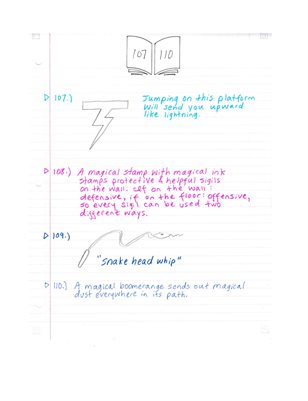 107 110
107.) Jumping on this platform
will send you upward
like lightning.
108.) A magical stamp with magical ink
stamps protective & helpful sigils
on the wall. If on the wall:
defensive, if on the floor: offensive,
so every sigil can be used two
different ways.
109.)
"snake head whip"
110.) A magical boomerange sends out magical
dust everywhere in its path.